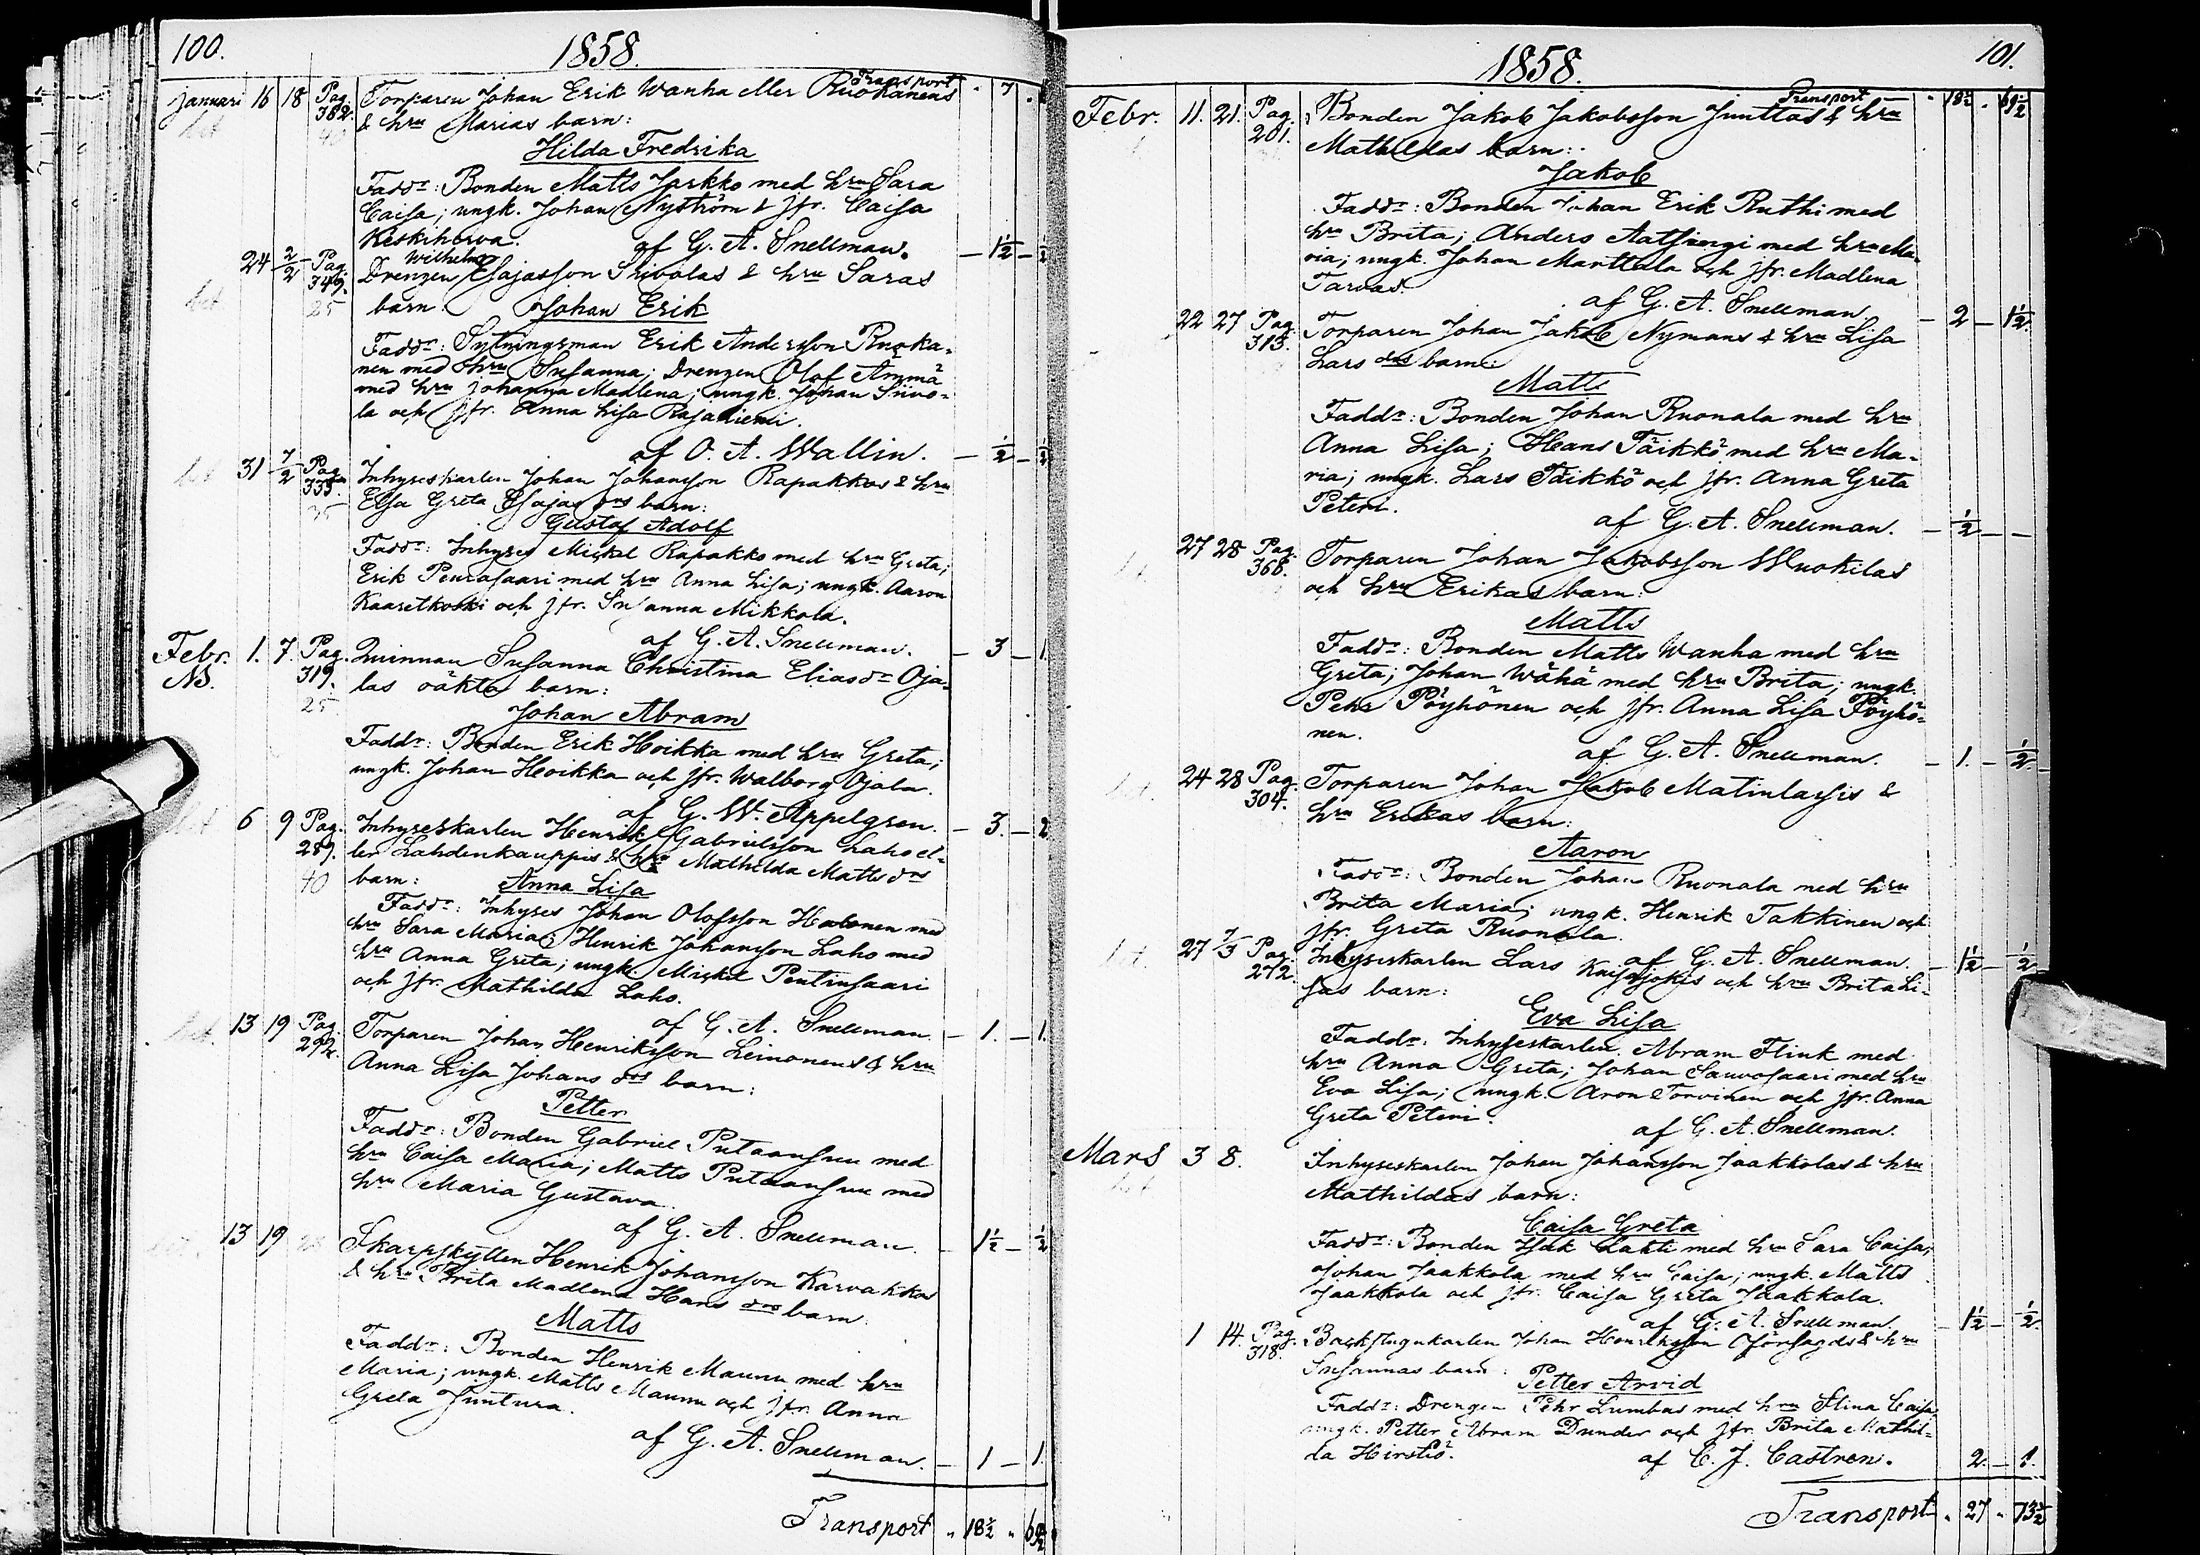 100.
1858.
Transport - 7 -
Januari 16 18 Pag. 382. Torparen Johan Erik Wanha eller Ruokanens
& hru Marias barn:
Hilda Fredrika
Faddr: Bonden Matts Jarkko med hru Sara
Caisa; ungk. Johan Nyström & jfr. Caisa
Keskiherva.
af G. A. Snellman. - 1½ - ½
24 2/2 Pag. 349. Drengen Wilhelm Esajasson Siivolas & hru Saras
25
barn Johan Erik
Faddr: Sytningsman Erik Andersson Ruoka-
nen med hru Susanna; Drengen Olof Ämmä
med hru Johanna Madlena; ungk. Johan Siivo-
la och jfr. Anna Lisa Rajaniemi.
af O. A. Wallin. - ½ - ½
31 7/2 Pag. 333. Inhyseskarlen Johan Johansson Rapakkos & hru
Elsa Greta Esajae drs barn:
Gustaf Adolf
Faddr: Inhyses Mickel Rapakko med hru Greta;
Erik Peurasaari med hru Anna Lisa; ungk. Aaron
Kaaretkoski och jfr. Susanna Mikkola.
af G. A. Snellman. - 3 - 1.
Febr. 1. 7. Pag. 319. Quinnan Susanna Christina Eliasdr Oja-
NB.
25
las oäkta barn:
Johan Abram
Faddr: Bonden Erik Hoikka med hru Greta;
ungk. Johan Hoikka och jfr. Walborg Ojala.
af G. W. Appelgren. - 3. - 2
6 9 Pag. 289. Inhyseskarlen Henrik Gabrielsson Laho el-
40
ler Lahdenkauppis & hru Mathilda Matts drs
barn: Anna Lisa
Faddr: Inhyses Johan Olofsson Halonen med
hru Sara Maria; Henrik Johansson Laho med
hru Anna Greta; ungk. Mickel Pentinsaari
och jfr. Mathilda Laho.
af G. A. Snellman - 1. - 1.
13 19 Pag. 292. Torparen Johan Henriksson Leinonens & hru
Anna Lisa Johans drs barn:
Petter
Faddr: Bonden Gabriel Putaansuu med
hru Caisa Maria; Matts Putaansuu med
hru Maria Gustava.
af G. A. Snellman. - 1½ - ½
13 19 Skarpskytten Henrik Johansson Karvakkos
& hru Brita Madlena Hans drs barn:
Matts
Faddr: Bonden Henrik Maunu med hru
Maria; ungk. Matts Maunu och jfr. Anna
Greta Juntura.
af G. A. Snellman. - 1 - 1.
Transport " 18½ "
101.
1858.
Transport - 18½ - 69½
Febr. 11. 21. Pag. 201. Bonden Jakob Jakobsson Junttas & hru
Mathildas barn:
Jakob
Faddr: Bonden Johan Erik Ruthi med
hru Brita; Anders Aatsingi med hru Ma-
ria; ungk. Johan Marttala och jfr. Madlena
Tarvas.
af G. A. Snellman. - 2 - 1½.
22 27 Pag. 313. Torparen Johan Jakob Nymans & hru Lisa
Lars drs barn:
Matts
Faddr: Bonden Johan Ruonala med hru
Anna Lisa; Hans Täikkö med hru Ma-
ria; ungk. Lars Täikkö och jfr. Anna Greta
Peteri.
af G. A. Snellman. - ½ - -
27 28 Pag. 368. Torparen Johan Jakobsson Wuokilas
och hru Erikas barn:
Matts
Faddr: Bonden Matts Wanha med hru
Greta; Johan Wähä med hru Brita; ungk.
Pehr Pöyhönen och jfr. Anna Lisa Pöyhö-
nen.
af G. A. Snellman. - 1. - ½.
24 28 Pag. 304. Torparen Johan Jakob Matinlassis &
hru Erikas barn:
Aaron
Faddr: Bonden Johan Ruonala med hru
Brita Maria; ungk. Henrik Takkinen och
jfr. Greta Ruonala.
af G. A. Snellman. - 1½ - ½
27 7/3 Pag. 272. Inhyseskarlen Lars Kaisajokis och hru Brita Li-
sas barn:
Eva Lisa
Faddr: Inhyseskarlen Abram Flink med
hru Anna Greta; Johan Sauvosaari med hru
Eva Lisa; ungk. Aron Torvinen och jfr. Anna
Greta Peteri.
af G. A. Snellman.
Mars 3 8. Inhyseskarlen Johan Johansson Jaakkolas & hru
Mathildas barn:
Caisa Greta
Faddr: Bonden Isak Lakti med hru Sara Caisa;
Johan Jaakkola med hru Caisa; ungk. Matts
Jaakkola och jfr. Caisa Greta Jaakkola.
af G. A. Snellman. - 1½ - ½.
1 14. Pag. 318. Backstugukarlen Johan Henriksson Försagds & hru
Susannas barn:
Petter Arvid
Faddr: Drengen Pehr Lumbus med hru Stina Caisa;
ungk. Petter Abram Dunder och jfr. Brita Mathil-
da Hirstiö.
af C. J. Castren. 2. - 1.
Transport " 27 " 73½